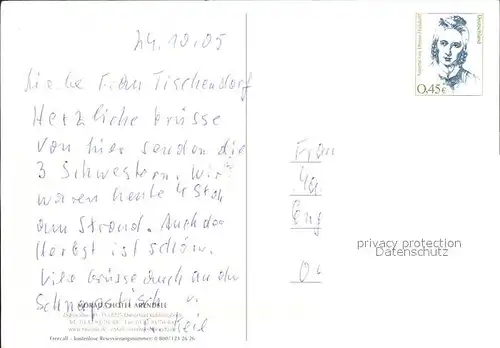 24.10.05
Liebe Frau Tischendorf
Herzliche Grüsse
von hier senden die
3 Schwestern. Wir
waren heute 4 Std
am Strand. Auch der
Herbst ist schön.
Viele Grüsse auch an den
Schnapstisch
Annette von Droste-Hülshoff
Deutschland
0,45€
Frau
privacy protection
Datenschutz
MORADA HOTEL ARENDSEE
Freecall - kostenlose Reservierungsnummer: 0 800/123 26 26